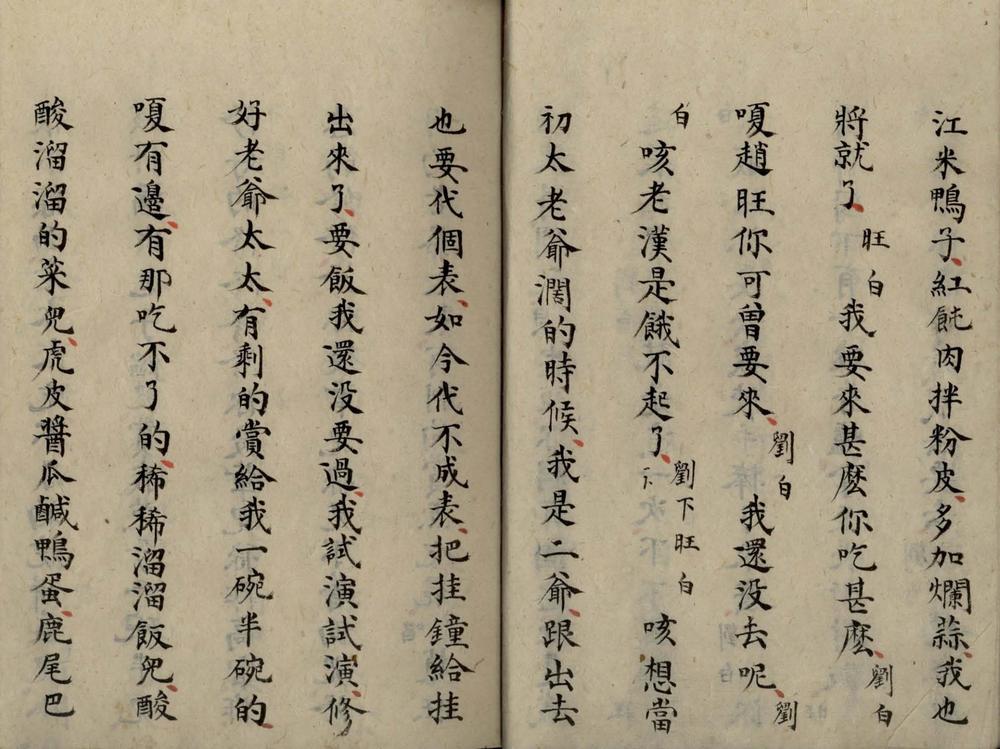 江米鴨子紅飩肉拌粉皮多加爛蒜我也
將就了旺白我要來甚麼你吃甚麼劉白
嗄趙旺你可曾要來劉白我還没去呢劉
白咳老漢是餓不起了下劉下旺白咳想當
初太老爺濶的時候我是二爺跟出去
也要代個表如今代不成表把挂鐘給挂
出來了要飯我還没要過我試演試演修
好老爺太太有剩的賞給我一碗半碗的
嗄有邊有那吃不了的稀稀溜溜飯兜酸
酸溜溜的菜兜虎皮醬瓜鹹鴨蛋鹿尾巴